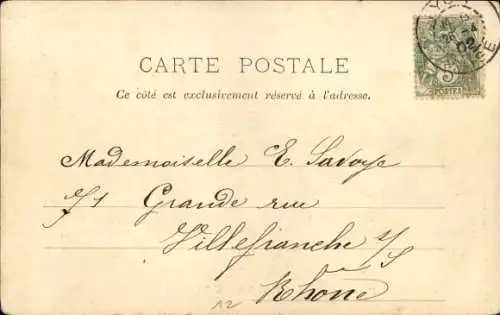 CARTE POSTALE
Ce côté est exclusivement réservé à l'adresse.
5
POSTES
Mademoiselle E. Savoye
71 Grande rue
Villefranche s/s
Rhône
A2